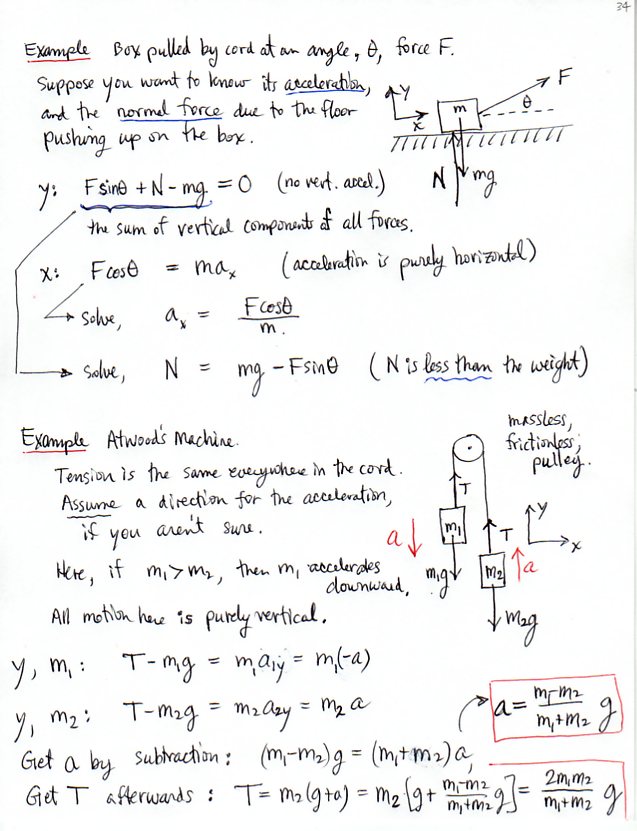 34
Example Box pulled by cord at an angle, θ, force F.
Suppose you want to know its acceleration,
and the normal force due to the floor
pushing up on the box.
y
x
m
F
θ
N
mg
y: Fsinθ + N - mg = 0 (no vert. accel.)
the sum of vertical components of all forces.
x: Fcosθ = maₓ (acceleration is purely horizontal)
solve, aₓ = Fcosθ/m.
solve, N = mg - Fsinθ (N is less than the weight)
Example Atwood's Machine.
massless,
frictionless,
pulley.
Tension is the same everywhere in the cord.
Assume a direction for the acceleration,
if you aren't sure.
Here, if m₁ > m₂, then m₁ accelerates
downward.
All motion here is purely vertical.
T
m₁
a
m₁g
T
m₂
a
m₂g
y
x
y, m₁: T - m₁g = m₁a₁y = m₁(-a)
y, m₂: T - m₂g = m₂a₂y = m₂a
a = (m₁-m₂)/(m₁+m₂) g
Get a by subtraction: (m₁-m₂)g = (m₁+m₂)a,
Get T afterwards: T = m₂(g+a) = m₂[g + (m₁-m₂)/(m₁+m₂) g] = 2m₁m₂/(m₁+m₂) g